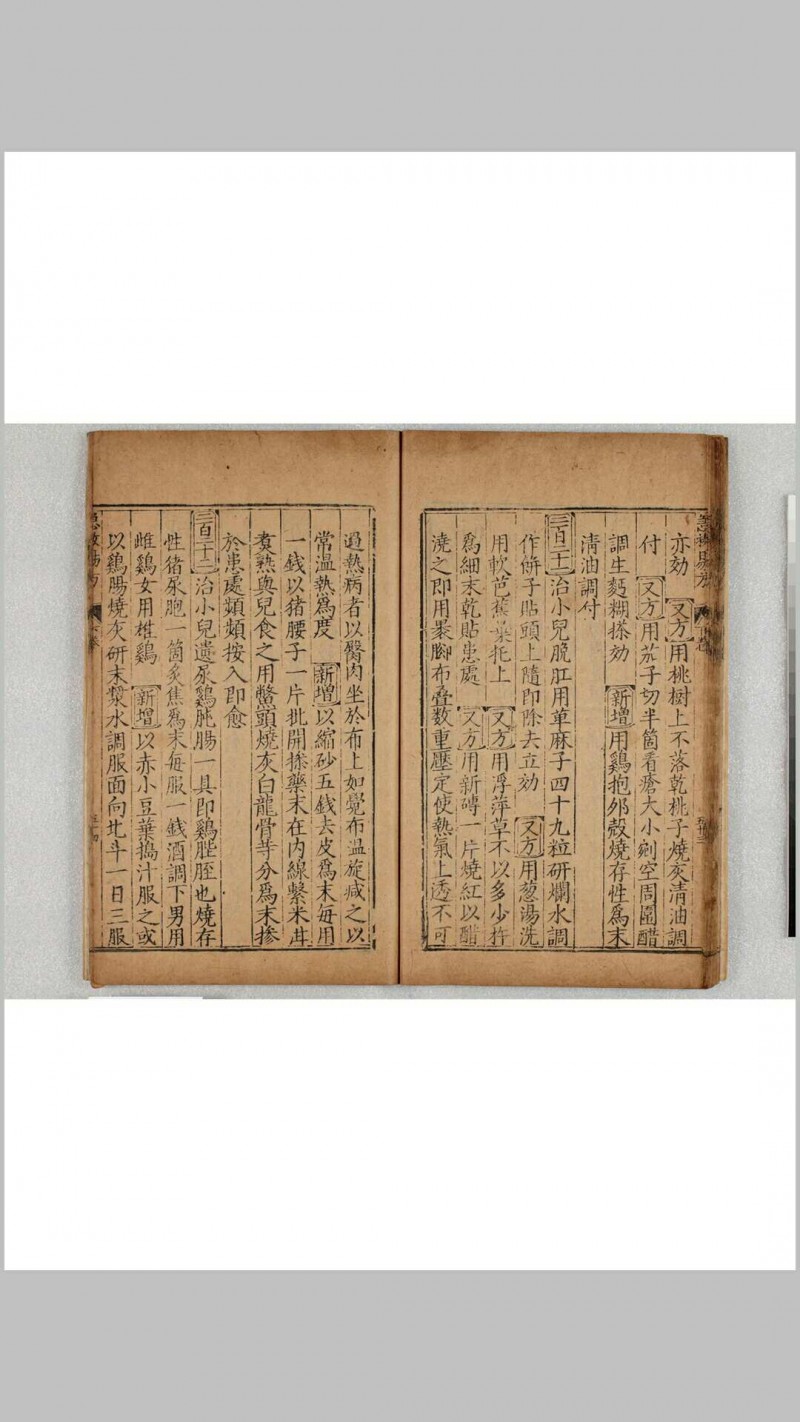 亦効 又方 用桃樹上不落乾桃子燒灰清油調
付 又方 用茄子切半箇看瘡大小剜空周圍醋
調生麪糊搽効 新增 用鷄抱卵殼燒存性爲末
清油調付
三百二十一 治小兒脫肛用萆麻子四十九粒研爛水調
作餅子貼頭上隨即除去立効 又方 用葱湯洗
用軟芭蕉葉托上 又方 用浮萍草不以多少杵
爲細末乾貼患處 又方 用新磚一片燒紅以醋
澆之即用裹脚布叠数重壓定使熱氣上透不可
過熱病者以臀肉坐於布上如覺布温旋减之以
常温熱爲度 新增 以縮砂五錢去皮爲末每用
一錢以猪腰子一片批開搽藥末在内線繫米泔
煮熟與兒食之用鱉頭燒灰白龍骨等分爲末摻
於患處頻頻按入即愈
三百二十二 治小兒遺尿鷄肶腸一具即鷄膍胵也燒存
性猪尿胞一箇炙焦爲末每服一錢酒調下男用
雌鷄女用雄鷄 新增 以赤小豆葉搗汁服之或
以鷄腸燒灰研末漿水調服面向北斗一日三服